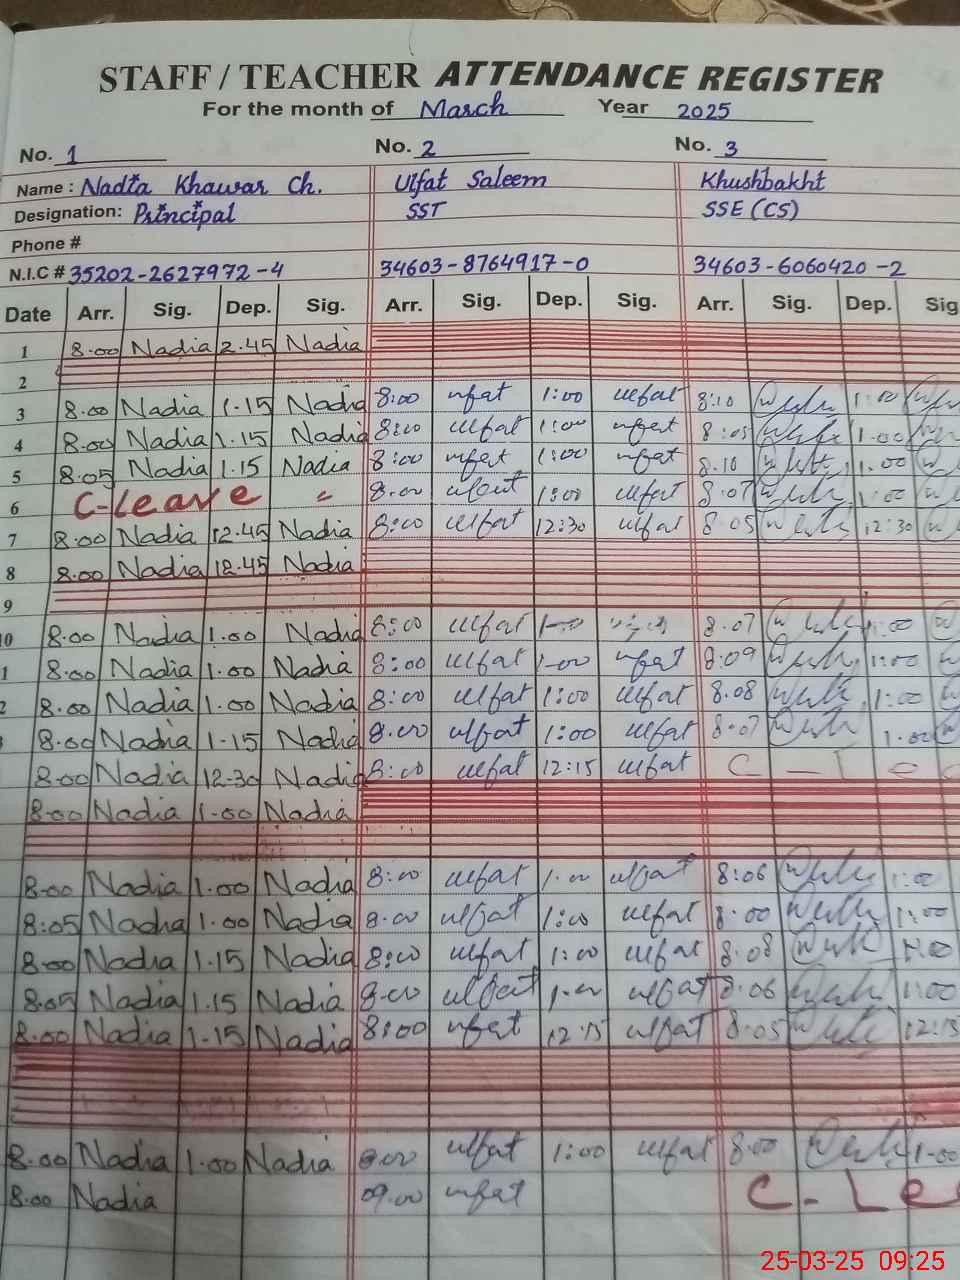 STAFF / TEACHER ATTENDANCE REGISTER
For the month of March Year 2025
No. 1 No. 2 No. 3
Name : Nadia Khawar Ch. Ulfat Saleem Khushbakht
Designation: Principal SST SSE (CS)
Phone #
N.I.C # 35202-2627972-4 34603-8764917-0 34603-6060420-2
Date Arr. Sig. Dep. Sig. Arr. Sig. Dep. Sig. Arr. Sig. Dep. Sig
1 8.00 Nadia 2.45 Nadia
2
3 8.00 Nadia 1.15 Nadia 8:00 ulfat 1:00 ulfat 8:10 1:00
4 8.00 Nadia 1.15 Nadia 8:00 ulfat 1:00 ulfat 8:05 1.00
5 8.05 Nadia 1.15 Nadia 8:00 ulfat 1:00 ulfat 8.10 1.00
6 C-leave 8:00 ulfat 1:00 ulfat 8:07 1:00
7 8.00 Nadia 12.45 Nadia 8:00 ulfat 12:30 ulfat 8:05 12:30
8 8.00 Nadia 12.45 Nadia
9
10 8.00 Nadia 1.00 Nadia 8:00 ulfat 8.07 1:00
1 8.00 Nadia 1.00 Nadia 8:00 ulfat 1-00 ulfat 8:09 1:00
2 8.00 Nadia 1.00 Nadia 8:00 ulfat 1:00 ulfat 8.08 1:00
8.00 Nadia 1-15 Nadia 8:00 ulfat 1:00 ulfat 8:07 1.00
8.00 Nadia 12-30 Nadia 8:00 ulfat 12:15 ulfat C - L e
8.00 Nadia 1.00 Nadia
8.00 Nadia 1.00 Nadia 8:00 ulfat 1.00 ulfat 8:06 1:00
8:05 Nadia 1.00 Nadia 8.00 ulfat 1:00 ulfat 8:00 1:00
8.00 Nadia 1.15 Nadia 8:00 ulfat 1:00 ulfat 8:08 1:00
8.05 Nadia 1.15 Nadia 8:00 ulfat 1.00 ulfat 8:06 1:00
8.00 Nadia 1.15 Nadia 8:00 ulfat 12:15 ulfat 8:05 12:15
8.00 Nadia 1.00 Nadia 8:00 ulfat 1:00 ulfat 8:00 1-00
8.00 Nadia 09.00 ulfat C - Le
25-03-25 09:25